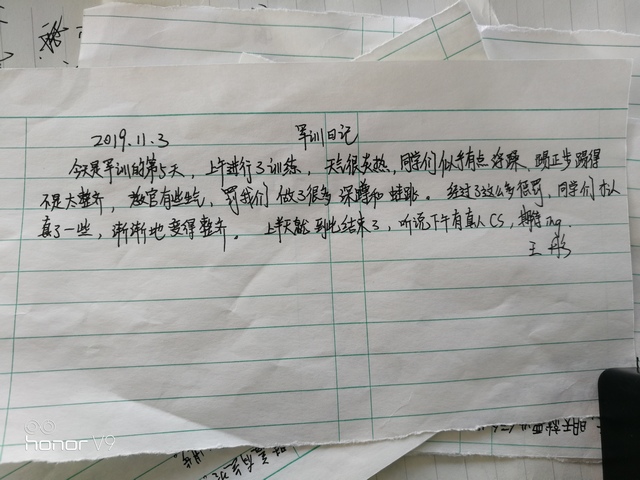 2019.11.3 军训日记
今天是军训的第5天，上午进行了训练，天气很炎热，同学们似乎有点好躁，踢正步踢得
不是太整齐，教官有些生气，罚我们做了很多深蹲和蛙跳。经过了这么多惩罚，同学们认
真了一些，渐渐地变得整齐。上半天就到此结束了，听说下午有真人CS，期待ing.
王彤
honor V9